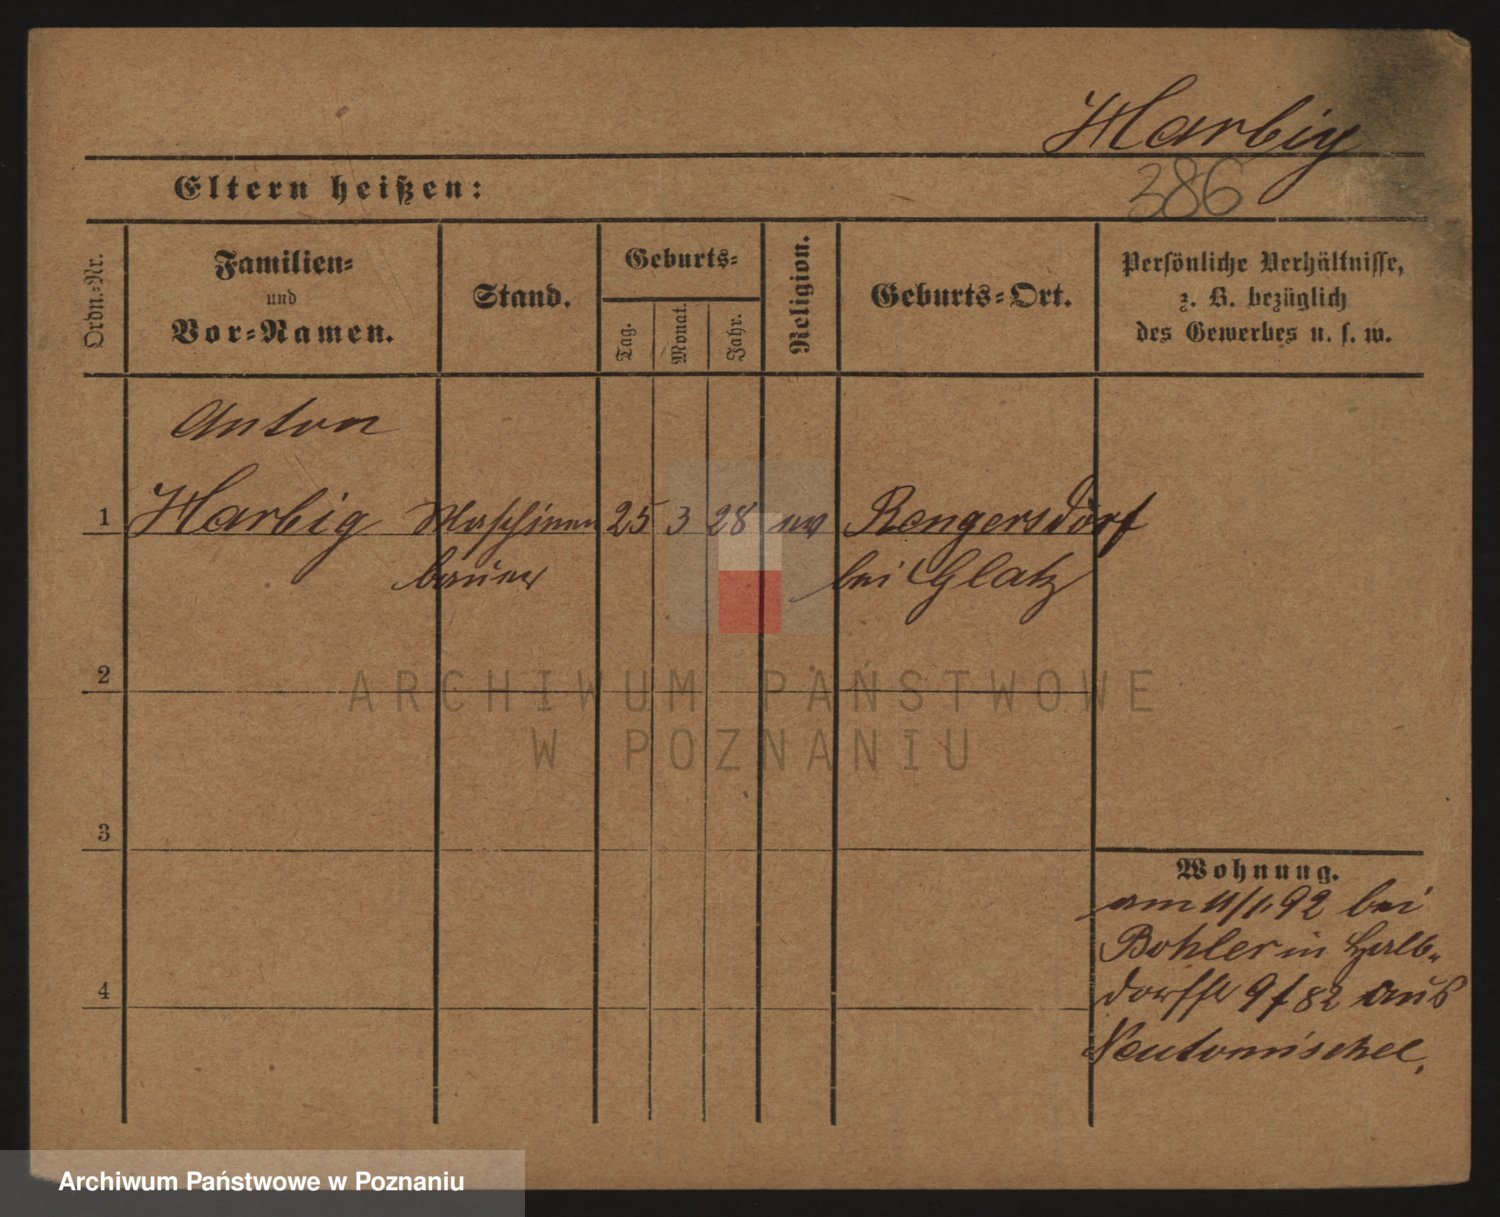 Harbig
Eltern heißen:
386
Ordn.-Nr.
Familien-
und
Vor-Namen.
Stand.
Geburts-
Tag.
Monat.
Jahr.
Religion.
Geburts-Ort.
Persönliche Verhältnisse,
z. B. bezüglich
des Gewerbes u. s. w.
Anton
1 Harbig Maschinen 25 3 28 ev Rengersdorf
bauer bei Glatz
2
ARCHIWUM PAŃSTWOWE
W POZNANIU
3
Wohnung.
am 11/1.92 bei
Bohler in Halb-
4
dorffst 9 f 82 aus
Neutomischel.
Archiwum Państwowe w Poznaniu